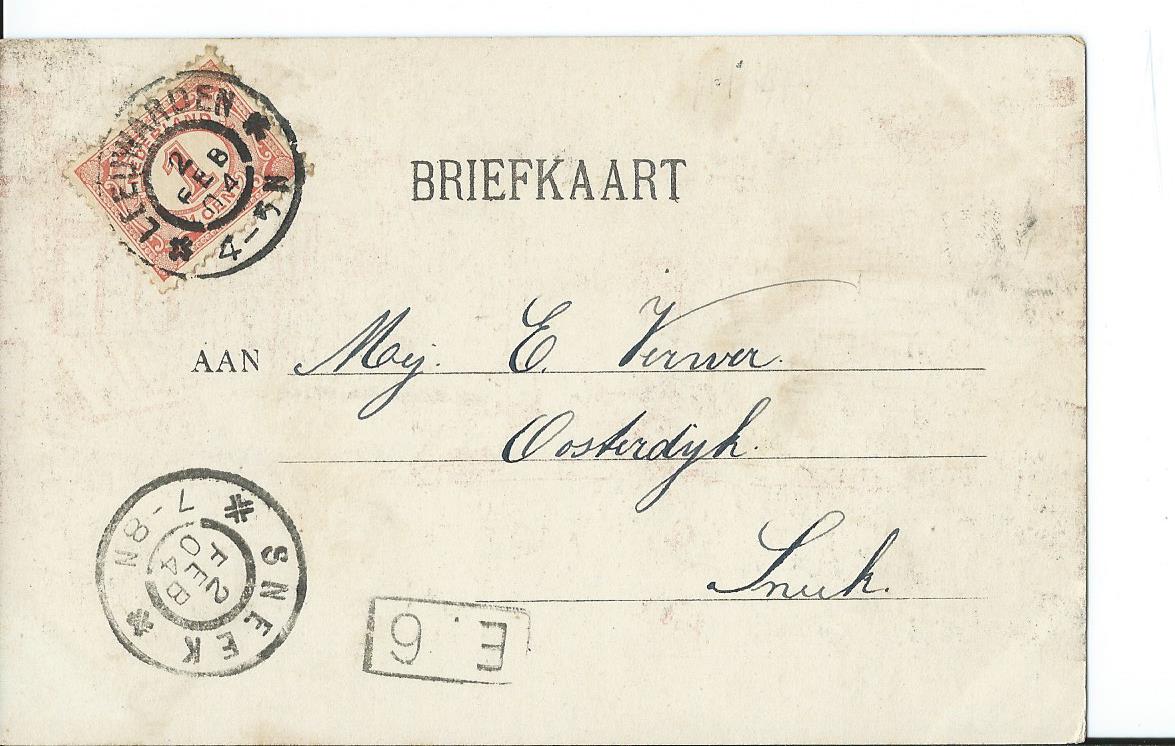 LEEUWARDEN
2 FEB 04
4-5N
NEDERLAND
1
BRIEFKAART
AAN Mej. E. Verwer.
Oosterdijk.
Sneek.
SNEEK
2 FEB 04
7-8N
E. 6